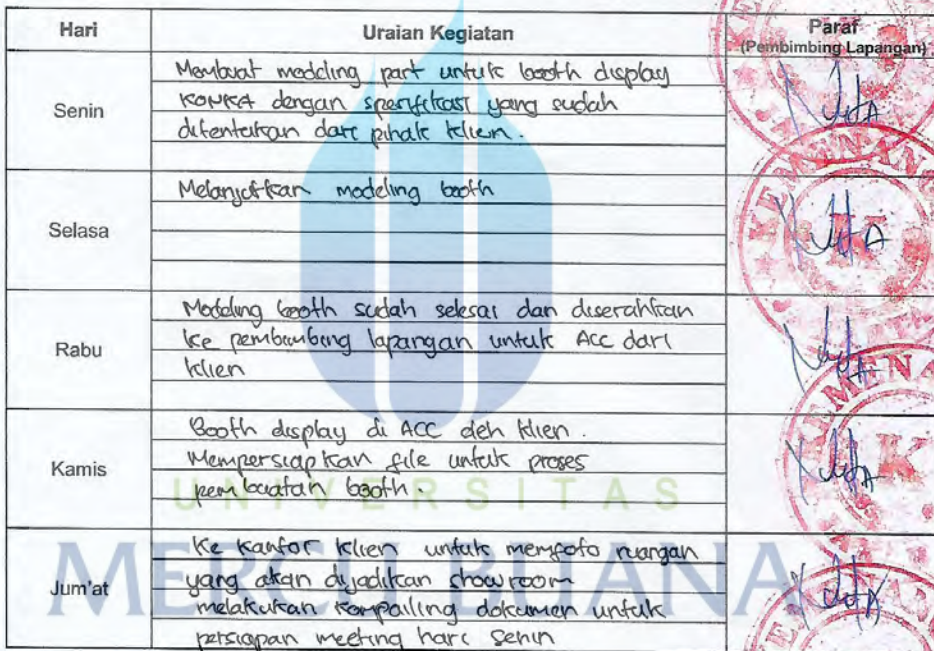 Hari Uraian Kegiatan Paraf
(Pembimbing Lapangan)
Senin
Membuat modeling part untuk booth display
KONKA dengan spesifikasi yang sudah
ditentukan dari pihak klien.
Selasa
Melanjutkan modeling booth
Rabu
Modeling booth sudah selesai dan diserahkan
ke pembimbing lapangan untuk Acc dari
klien
Kamis
Booth display di ACC oleh klien.
Mempersiapkan file untuk proses
pembuatan booth.
UNIVERSITAS
MERCU BUANA
Jum'at
Ke Kantor klien untuk memfoto ruangan
yang akan dijadikan showroom
melakukan kompailing dokumen untuk
persiapan meeting hari senin
KEMENANG
K
KEMENA
K